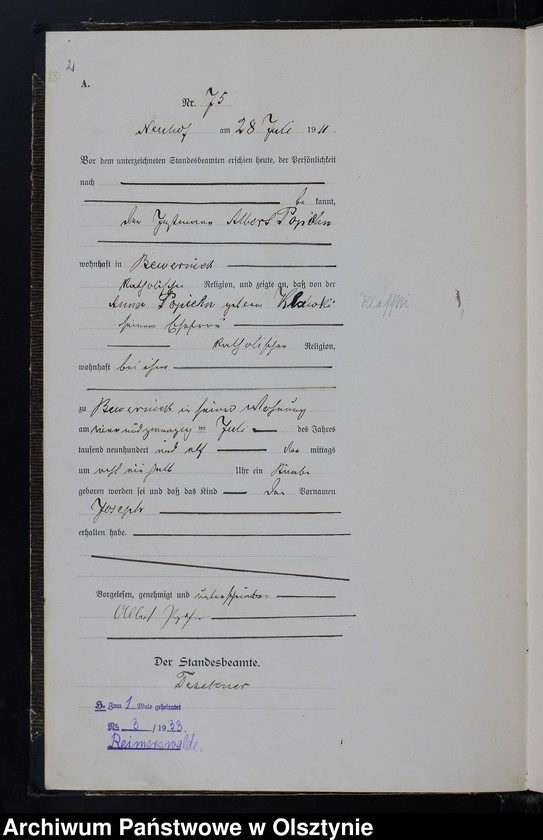 2
A.
Nr. 75
Neuhof am 28 Juli 1911.
Vor dem unterzeichneten Standesbeamten erschien heute, der Persönlichkeit
nach
be kannt,
der Instmann Albert Popiehn
wohnhaft in Bewernick
katholischer Religion, und zeigte an, daß von der
Anna Popiehn geborene
Klafski
seiner Ehefrau
katholischer Religion,
wohnhaft bei ihm
zu Bewernick in seiner Wohnung
am vier und zwanzig ten Juli des Jahres
tausend neunhundert und elf mittags
um acht ein halb Uhr ein Knabe
geboren worden sei und daß das Kind den Vornamen
Joseph
erhalten habe.
Vorgelesen, genehmigt und unterschrieben
Albert
Der Standesbeamte.
H. Zum 1 Male geheiratet
Nr. 3 / 1933.
Reimerswalde.
Archiwum Państwowe w Olsztynie